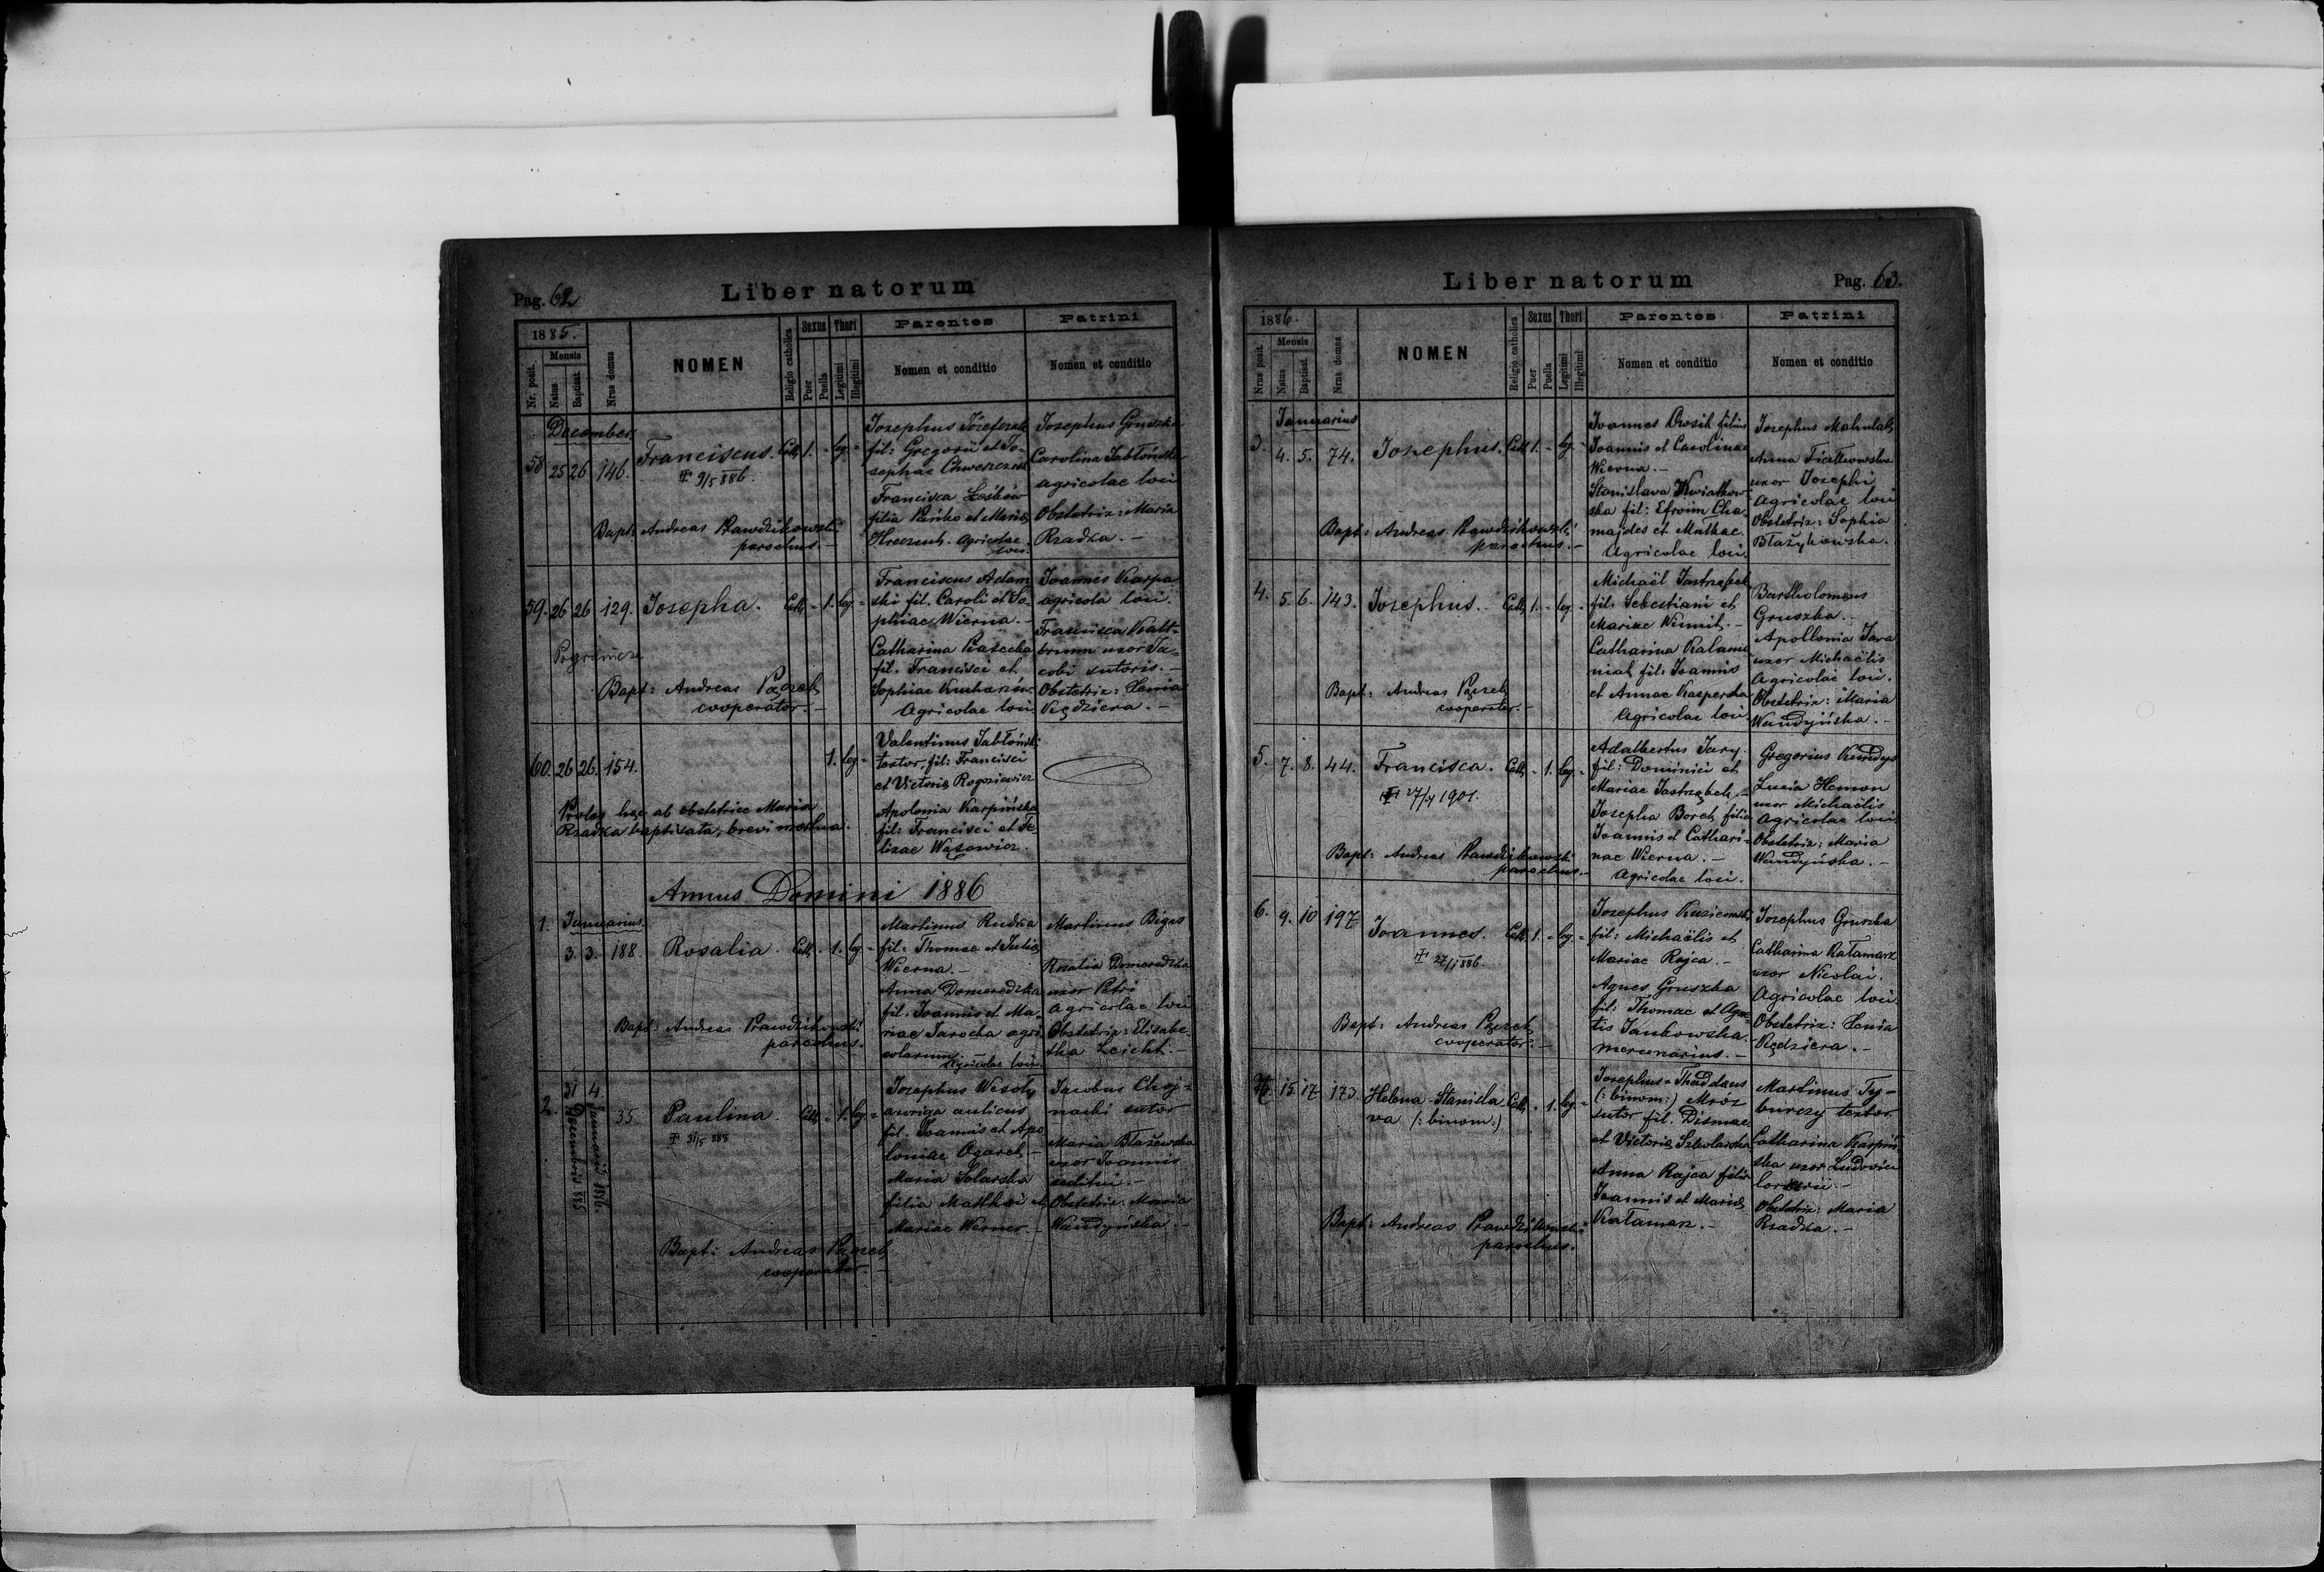 Pag. 62
Liber natorum
1885.
Nr. posit.
Mensis
Natus
Baptisat.
Nrus domus
NOMEN
Religio catholica
Sexus
Puer
Puella
Thori
Legitimi
Illegitimi
Parentes
Nomen et conditio
Patrini
Nomen et conditio
December
58 25 26 146. Franciscus. Cath. 1. - leg. -
9/5 886.
Bapt: Andreas Prawdzikowski
parochus. -
Josephus Józefczuk
fil: Gregorii et Jo-
sephae
Francisca
filia et Mariae
Agricolae
loci
Josephus Gruszka
Carolina Jabłońska
agricolae loci
Obstetrix: Maria
Rzadka. -
59. 26 26 129. Josepha. Cath. - 1. leg. -
Bapt: Andreas Pączek
cooperator. -
Franciscus Adam
ski fil. Caroli et So-
phiae Wierna. -
Catharina
fil. Francisci et
Sophiae
Agricolae loci
Joannes Karpa
agricola loci.
Francisca
uxor Ja-
cobi sutoris. -
Obstetrix: Xenia
Kędziera. -
60. 26 26. 154. 1. leg -
Proles haec ab obstetrice Maria
Rzadka baptisata, brevi mortua.
Valentinus Jabłoński
textor, fil: Francisci
et Victoria Rogoziewicz
Apolonia Karpińska
fil: Francisci et Fe
lixae Wąsowicz.
Annus Domini 1886
Januarius.
1. 3. 3. 188. Rosalia. Cath. - 1. leg -
Bapt: Andreas Prawdzikowski
parochus.
Martinus Rudka
fil: Thomae et Julia
Wierna. -
Anna Domeredzka
fil. Joannis et Ma-
riae Jarocka agri-
colarum. -
Agricolae loci.
Martinus Bigus
Rosalia Domeredzka
uxor Petri
agricolae loci
Obstetrix: Elisabe-
tha Leicht. -
2. 31 Decembris 885 4. Januarii 1886. 35 Paulina. Cath. - 1. leg -
31/5 888
Bapt: Andreas Pączek
cooperator. -
Josephus Wesoły
auriga aulicus
fil. Joannis et Apo
loniae Ogarek -
Maria Solarska
filia Mathaei et
Mariae Werner. -
Jacobus Choj-
nacki sutor
Maria Błażewska
uxor Joannis
Obstetrix: Maria
Wandyńska. -
Liber natorum
Pag. 63.
1886.
Nrus posit.
Mensis
Natus
Baptisat.
Nrus domus
NOMEN
Religio catholica
Sexus
Puer
Puella
Thori
Legitimi
Illegitimi
Parentes
Nomen et conditio
Patrini
Nomen et conditio
Januarius
3. 4. 5. 74. Josephus. Cath. 1. - leg. -
Bapt: Andreas Prawdzikowski
parochus. -
Joannes filius
Joannis et Carolinae
Wierna. -
Stanislava Kwiatkow-
ska fil: Efroim Cha-
majdes et Malkae.
Agricolae loci.
Josephus
Anna
uxor Josephi
agricolae loci
Obstetrix: Sophia
Błażykowska.
4. 5. 6. 143. Josephus. Cath. 1. - leg. -
Bapt: Andreas Pączek
cooperator. -
Michaël Jastrzębek
fil: Sebastiani et
Mariae
Catharina Kalama
niak fil: Joannis
et Annae Kasperska
Agricolae loci.
Bartholomeus
Gruszka. -
Apollonia Jara
uxor Michaëlis
Agricolae loci.
Obstetrix: Maria
Wandyńska. -
5. 7. 8. 44. Francisca. Cath. - 1. leg. -
1901.
Bapt: Andreas Prawdzikowski
parochus. -
Adalbertus Jary
fil: Dominici et
Mariae Jastrzębek. -
Josepha Borek filia
Joannis et Cathari-
nae Wierna. -
Agricolae loci.
Gregorius Kundys
Lucia Hemon
uxor Michaëlis
Agricolae loci
Obstetrix: Maria
Wandyńska. -
6. 9. 10 197 Joannes. Cath. 1. - leg. -
27/1 886.
Bapt: Andreas Pączek
cooperator. -
Josephus
fil: Michaëlis et
Mariae Rajca. -
Agnes Gruszka
fil: Thomae et Agne-
tis Jankowska.
mercenarius. -
Josephus Gruszka
Catharina Kałamarz
uxor Nicolai.
Agricolae loci
Obstetrix: Xenia
Kędziera. -
7 15 17 173. Helena-Stanisla- Cath. - 1. leg. -
va (: binom:)
Bapt: Andreas Prawdzikowski
parochus.
Josephus-Thaddaus
(: binom:) Mróz
sutor fil. Dismae
et Victoria Szkolarska
Anna Rajca filia
Joannis et Mariae
Kałamarz. -
Martinus Ty-
burczy textor.
Catharina Karpiń
ska uxor Ludovici
Obstetrix: Maria
Rzadka. -